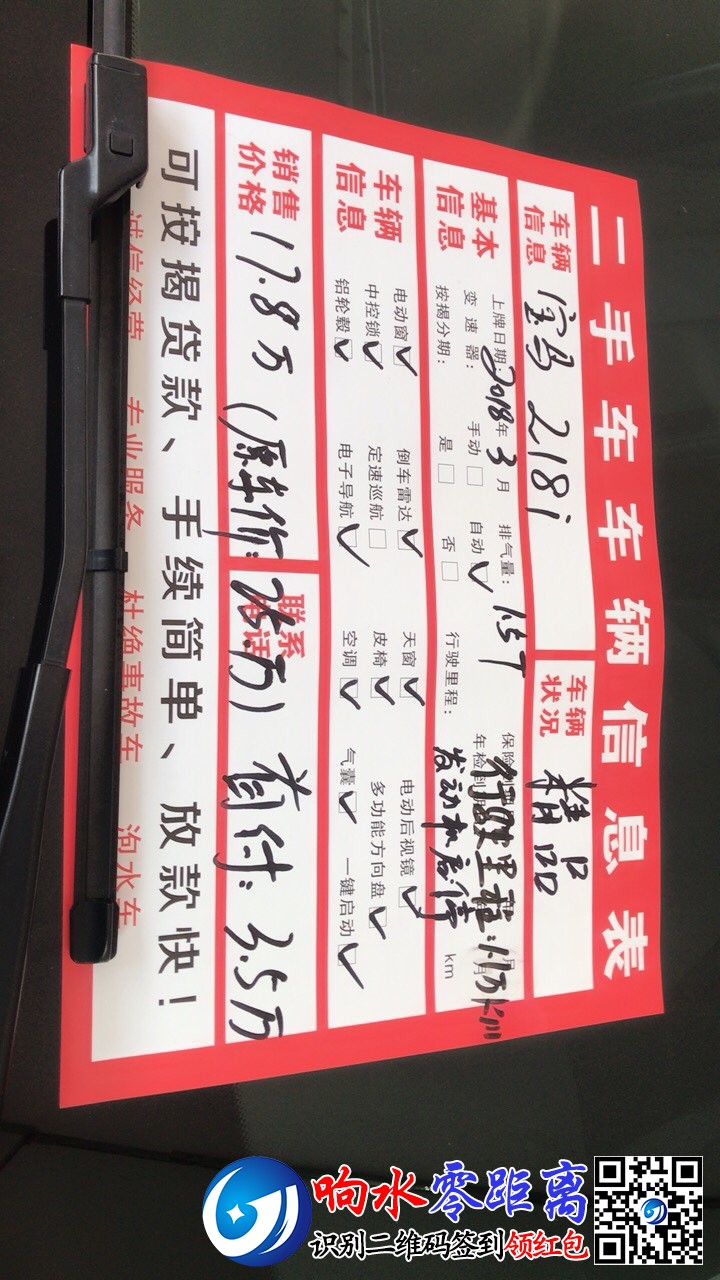 二手车车辆信息表
车辆信息 宝马 218i 车辆状况 精品
基本信息 上牌日期: 2018年 3月 排气量: 1.5T
变速器: 手动□ 自动☑ 行驶里程:
按揭分期: 是□ 否□ 行驶里程: 发动机启停 km
车辆信息 电动窗☑ 倒车雷达☑ 天窗☑ 电动后视镜☑
中控锁☑ 定速巡航□ 皮椅☑ 多功能方向盘☑
铝轮毂☑ 电子导航☑ 空调☑ 气囊☑ 一键启动☑
销售价格 17.8万(原车价: 万) 首付: 3.5万
联系
可按揭贷款、手续简单、放款快!
诚信经营 专业服务 杜绝事故车 泡水车
响水零距离
识别二维码签到领红包